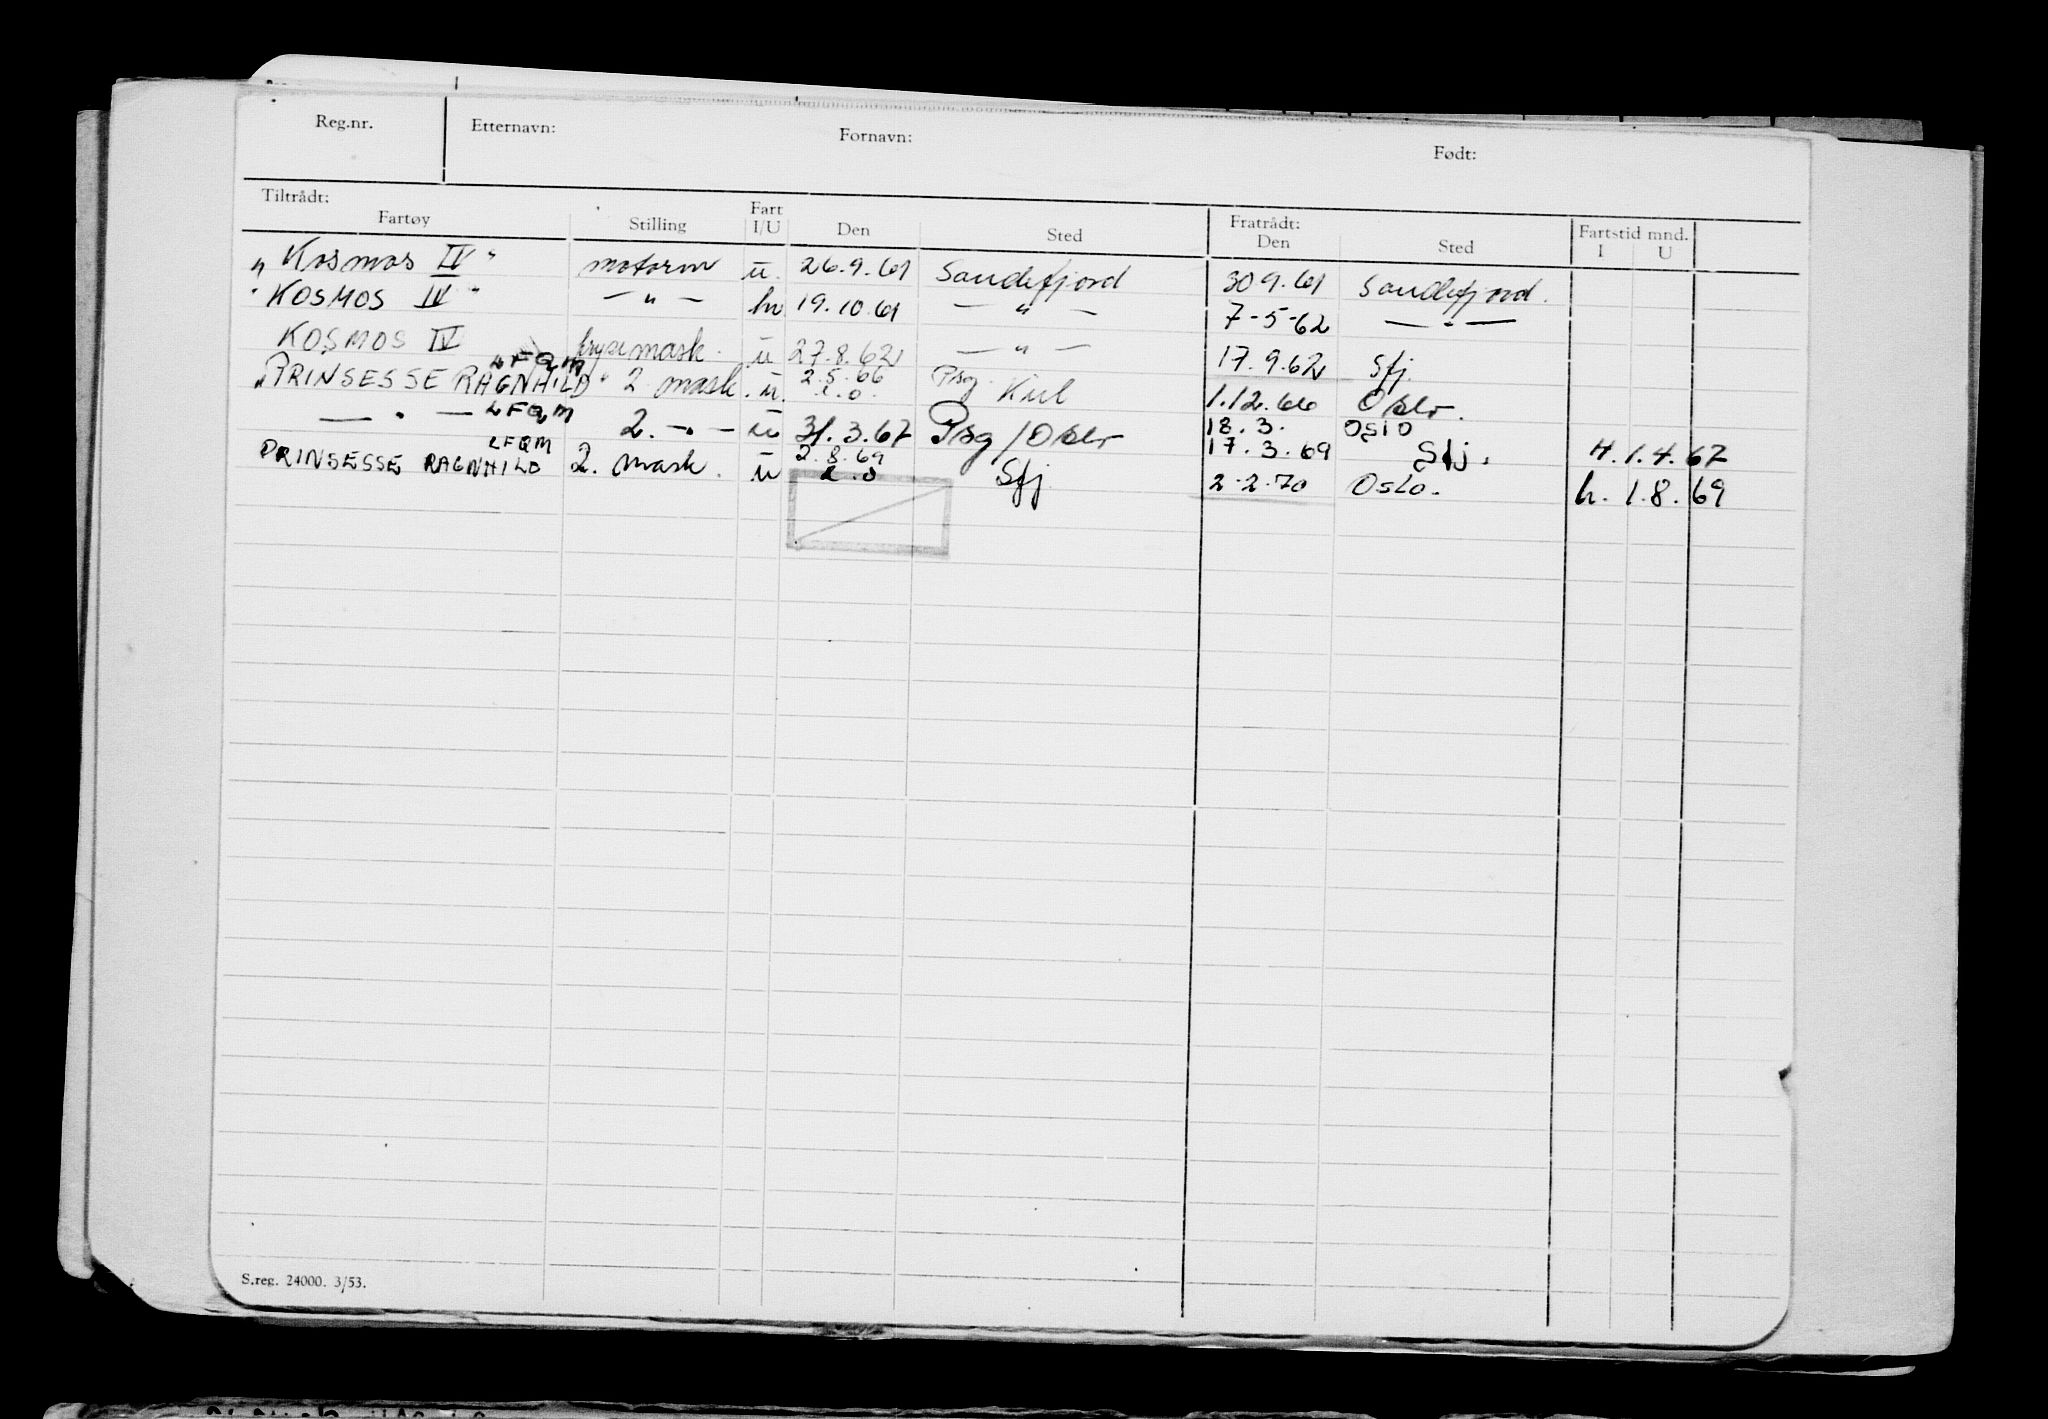 Reg.nr. Etternavn: Fornavn: Født:
Tiltrådt: Fratrådt:
Fartøy Stilling Fart I/U Den Sted Den Sted Fartstid mnd. I U
"Kosmos IV" motorm u. 26.9.61 Sandefjord 30 9.61 Sandefjord.
"KOSMOS IV" — " — hv 19.10.61 — " — 7-5-62 — " —
KOSMOS IV frysemask. u 27.8.62 — " — 17.9.62 Sfj.
LFQM
"PRINSESSE RAGNHILD" 2 mask. u. 2.5.66 Psg. Kiel 1.12.66 Oslo.
LFQM
— " — 2. — " — u 31.3.67 Psg/Oslo 18.3. OSlO
17.3.69 Sfj. H.1.4.67
LFQM
PRINSESSE RAGNHILD 2. mask. u 2.8.69 Sfj 2-2-70 Oslo. h. 1.8.69
S.reg. 24000. 3/53.